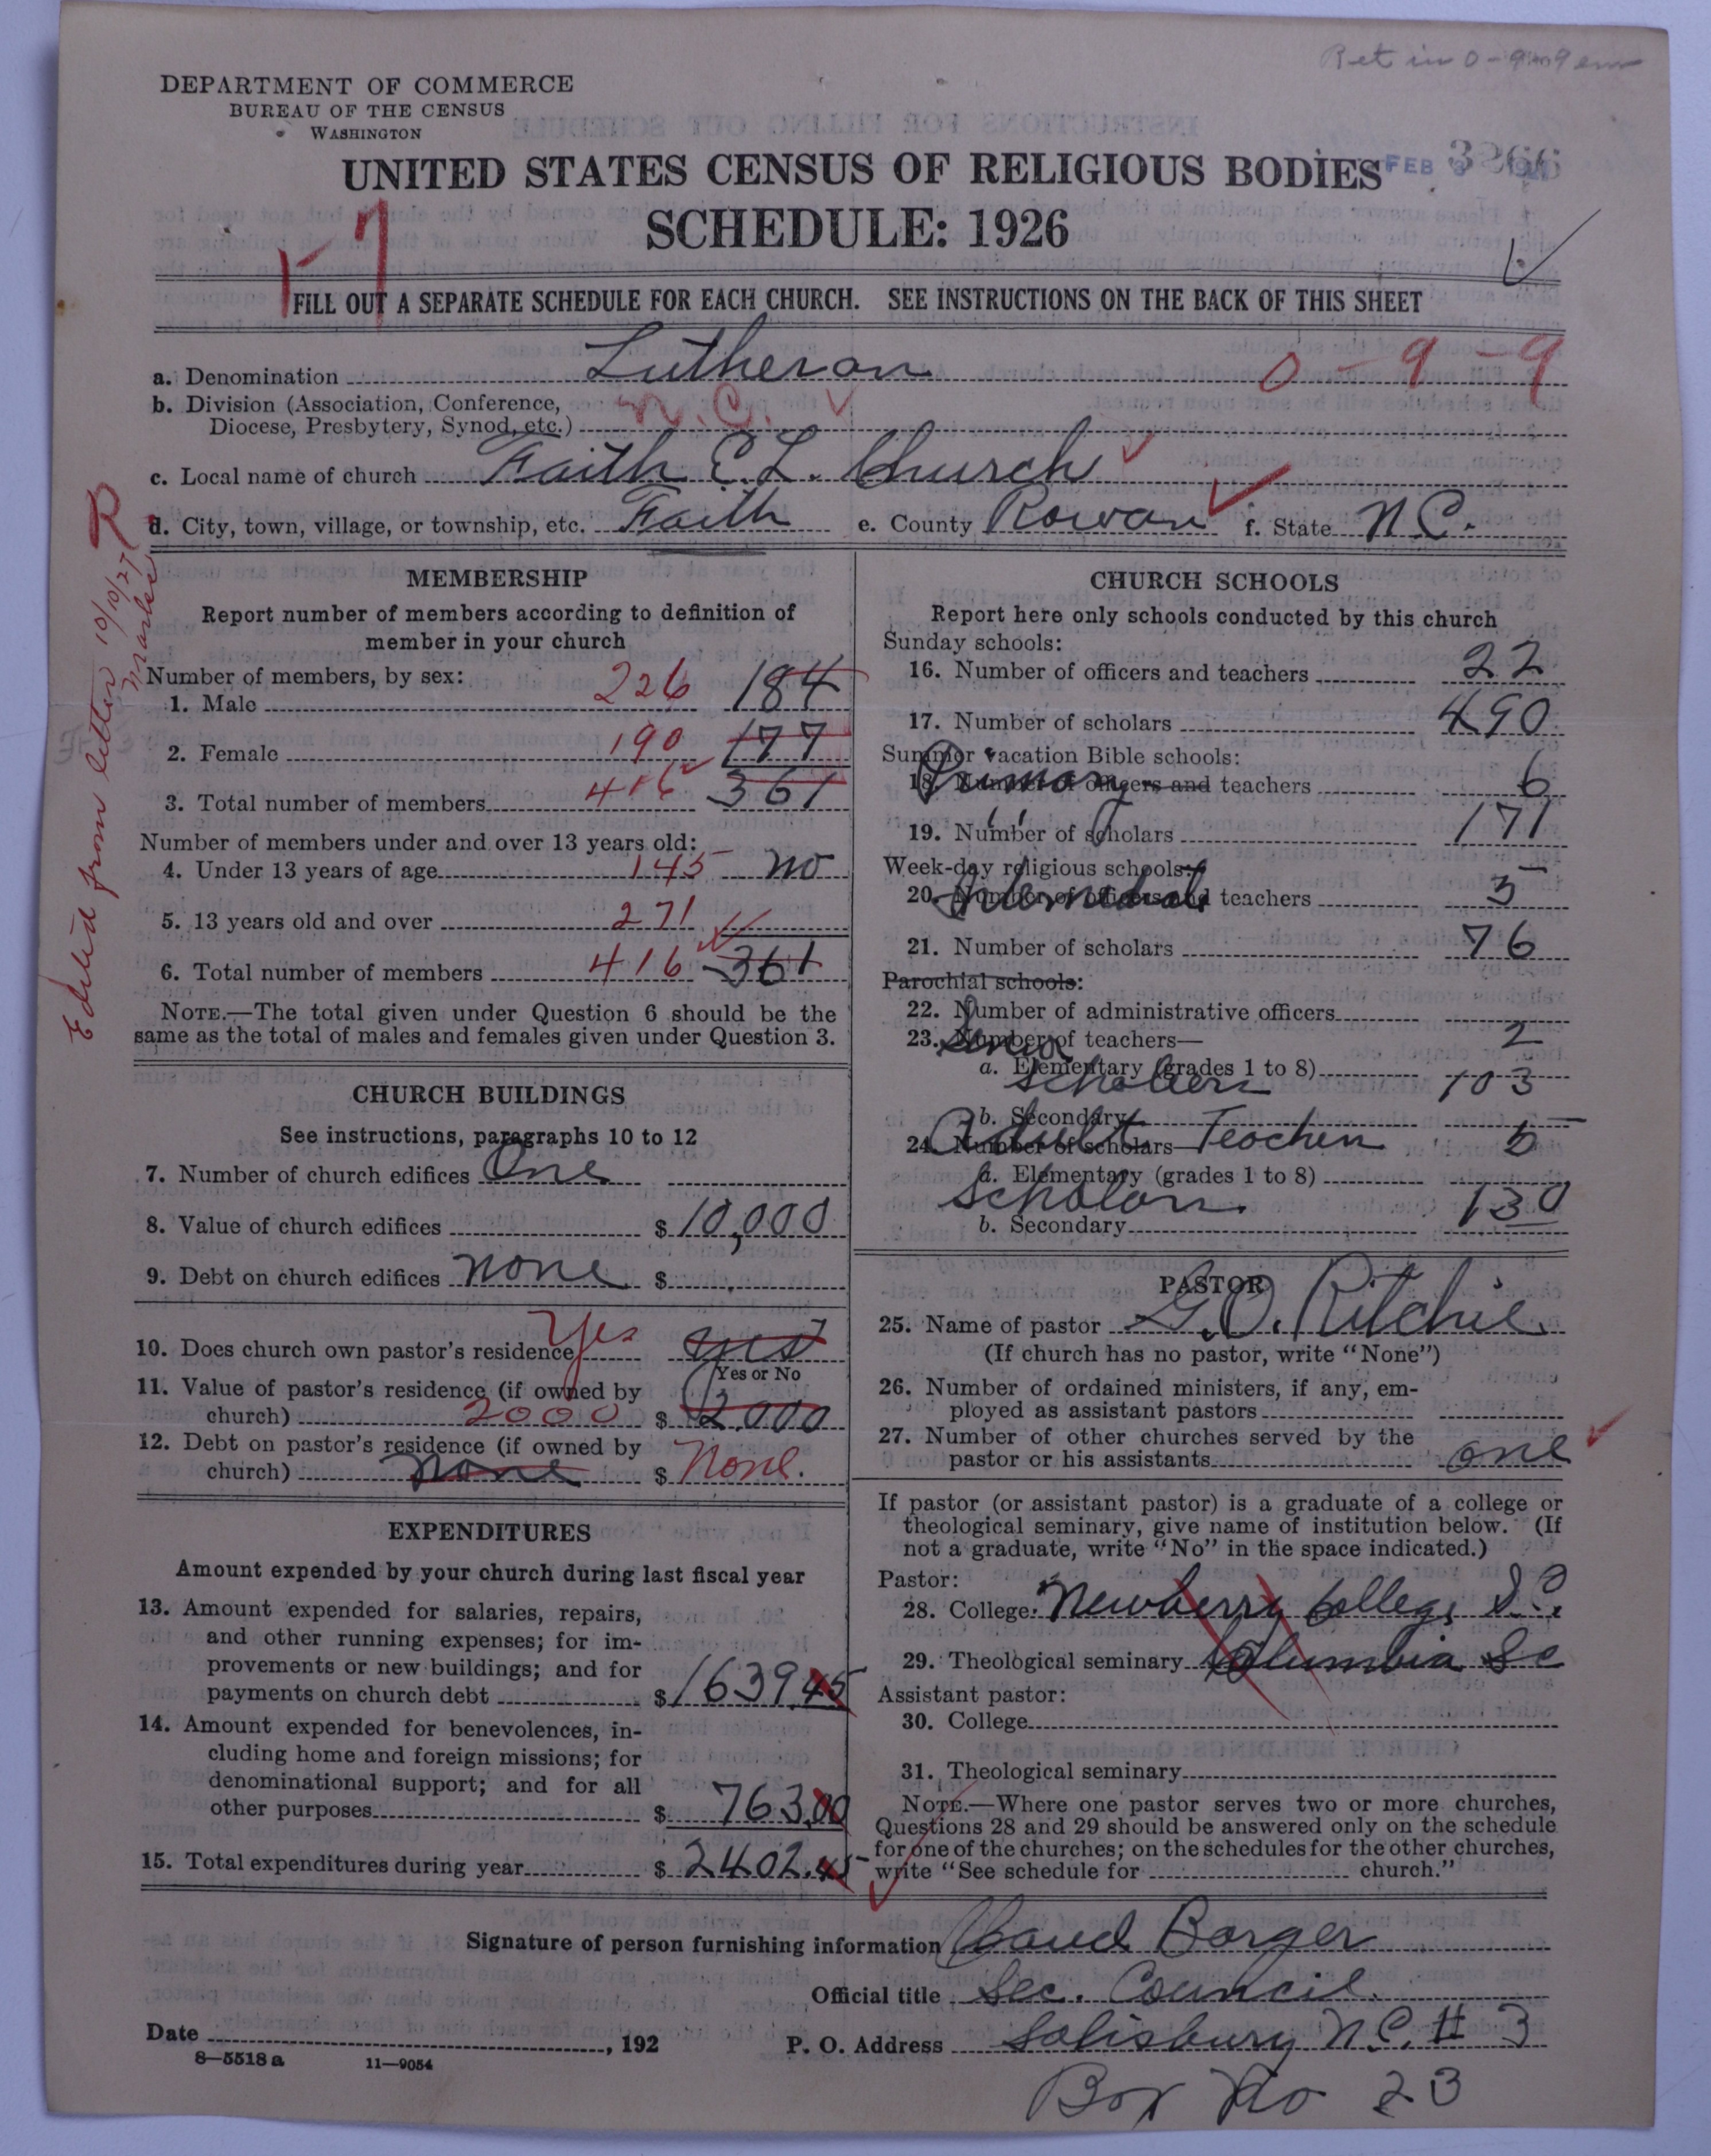 Ret in 0-9
DEPARTMENT OF COMMERCE
BUREAU OF THE CENSUS
WASHINGTON
UNITED STATES CENSUS OF RELIGIOUS BODIES
FEB 3266
SCHEDULE: 1926
FILL OUT A SEPARATE SCHEDULE FOR EACH CHURCH. SEE INSTRUCTIONS ON THE BACK OF THIS SHEET
a. Denomination Lutheran 0-9-9
b. Division (Association, Conference,
Diocese, Presbytery, Synod, etc.) N.C.
c. Local name of church Faith E.L. Church
d. City, town, village, or township, etc. Faith e. County Rowan f. State N.C.
Edited from letter 10/10/27
MEMBERSHIP
Report number of members according to definition of
member in your church
Number of members, by sex:
1. Male 226 184
2. Female 190 177
3. Total number of members 416 361
Number of members under and over 13 years old:
4. Under 13 years of age 145 no
5. 13 years old and over 271
6. Total number of members 416 361
NOTE.—The total given under Question 6 should be the
same as the total of males and females given under Question 3.
CHURCH BUILDINGS
See instructions, paragraphs 10 to 12
7. Number of church edifices One
8. Value of church edifices $ 10,000
9. Debt on church edifices None $
10. Does church own pastor's residence Yes yes
Yes or No
11. Value of pastor's residence (if owned by
church) 2000 $ 2000
12. Debt on pastor's residence (if owned by
church) None $ None.
EXPENDITURES
Amount expended by your church during last fiscal year
13. Amount expended for salaries, repairs,
and other running expenses; for im-
provements or new buildings; and for
payments on church debt $ 1639.45
14. Amount expended for benevolences, in-
cluding home and foreign missions; for
denominational support; and for all
other purposes $ 763.00
15. Total expenditures during year $ 2402.45
CHURCH SCHOOLS
Report here only schools conducted by this church
Sunday schools:
16. Number of officers and teachers 22
17. Number of scholars 490
Summer vacation Bible schools:
Primary
18. Number of officers and teachers 6
19. Number of scholars 171
Week-day religious schools:
20. Number of officers and teachers 5
21. Number of scholars 76
Parochial schools:
22. Number of administrative officers
Senior
23. Number of teachers— 2
a. Elementary (grades 1 to 8)
Scholars 103
b. Secondary
Adult Teacher 5
24. Number of scholars—
a. Elementary (grades 1 to 8)
Scholars. 130
b. Secondary
PASTOR
25. Name of pastor G.O. Ritchie
(If church has no pastor, write "None")
26. Number of ordained ministers, if any, em-
ployed as assistant pastors
27. Number of other churches served by the
pastor or his assistants one
If pastor (or assistant pastor) is a graduate of a college or
theological seminary, give name of institution below. (If
not a graduate, write "No" in the space indicated.)
Pastor:
28. College Newberry College S.C.
29. Theological seminary Columbia SC
Assistant pastor:
30. College
31. Theological seminary
NOTE.—Where one pastor serves two or more churches,
Questions 28 and 29 should be answered only on the schedule
for one of the churches; on the schedules for the other churches,
write "See schedule for church."
Signature of person furnishing information Barger
Official title Sec. Council
Date , 192 P. O. Address Salisbury N.C. # 3
8—5518 a 11—9054
Box No 23